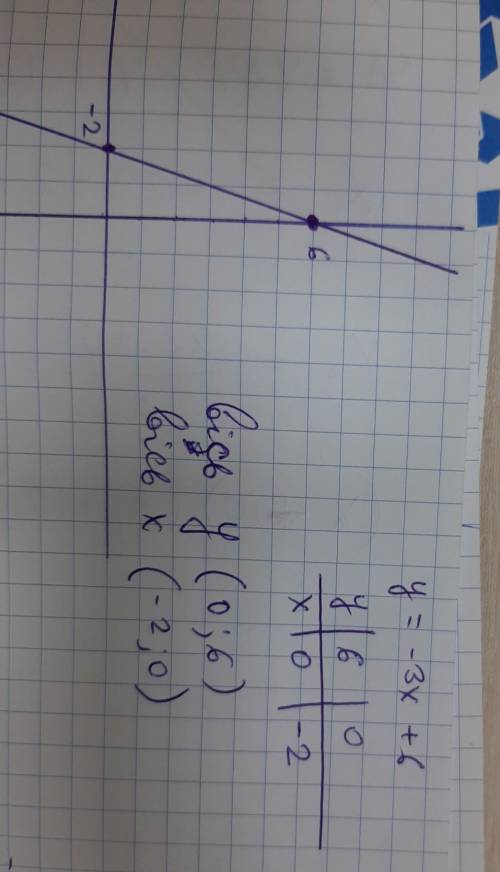 y = -3x + 6
y | 6 | 0
x | 0 | -2
вісь y (0;6)
вісь x (-2;0)
6
-2